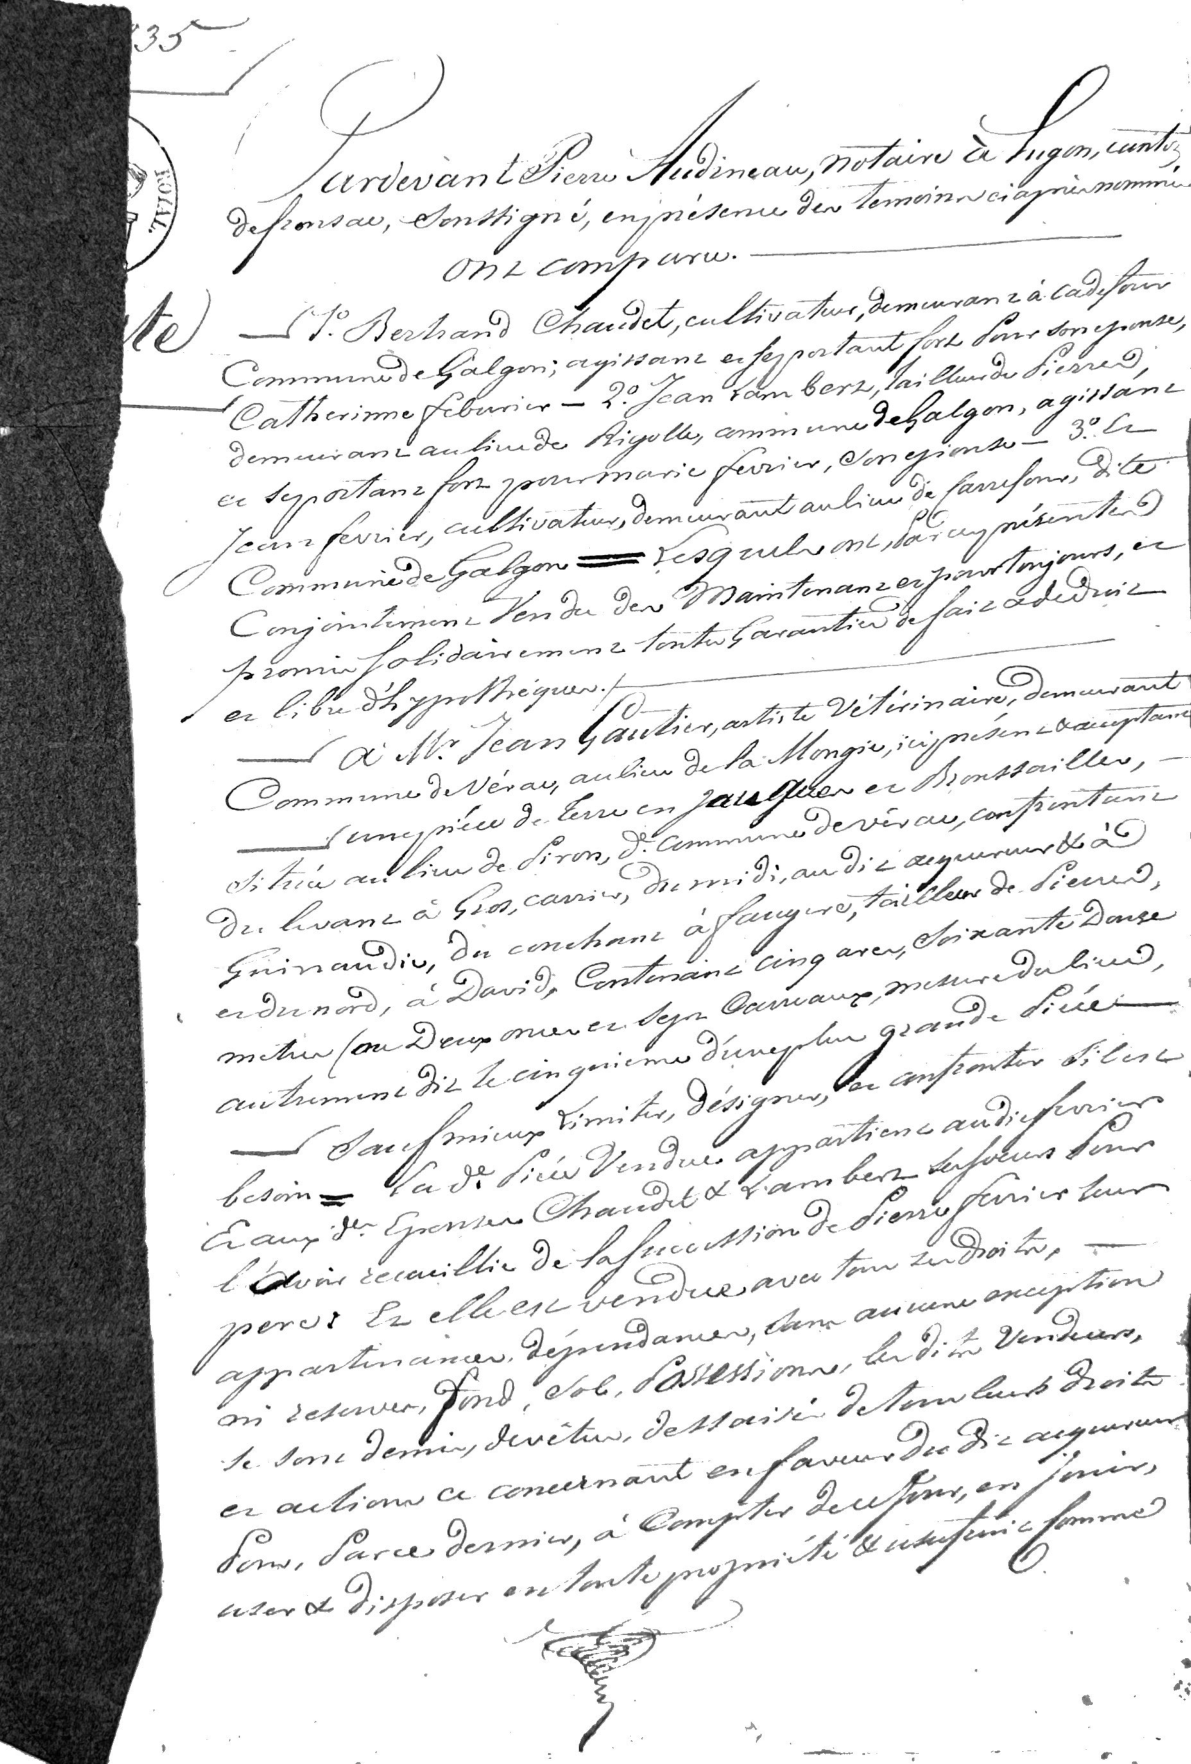 35
ROYAL.
Pardevant Pierre Audineau, notaire à Lugon, canton
de fronsac, soussigné, en présence des temoins ci après nommés
ont comparu.
nte
1º. Bertrand Chaudet, cultivateur, demeurant à
Commune de Galgon; agissant et se portant fort pour son épouse,
Catherinne feburier — 2º. Jean Lambert, tailleur de Pierres,
demeurant au lieu de Rigolle, commune de Galgon, agissant
et se portant fort pour marie fevrier, son épouse — 3º. Et
Jean fevrier, cultivateur, demeurant au lieu de Carrefour, dite
Commune de Galgon = Lesquels ont, par ces présentes
Conjointement Vendu des Maintenant et pour toujours, et
promis solidairement toutes Garanties de fait & de droit
et libre d'hypothéques./.
à Mr. Jean Gautier, artiste Vétérinaire, demeurant
Commune de Vérac, au lieu de la Mongie, ici présent & acceptant
une pièce de terre en jaugues et Broussailles,
Située au lieu de Piron, de. commune de vérac, confrontant
du levant à Gros, carrier, du midi, au dit acquereur & à
Guinaudie, du couchant à faugere, tailleur de Pierres,
et du nord, à David, Contenant cinq ares, soixante Douze
metres (ou Deux onces et sept Carreaux, mesure du lieu),
autrement dit le cinquieme d'une plus grande Piéce
Sauf mieux Limiter, désigner, et confronter S'il est
besoin = La de. Piéce Vendue appartient au dit fevrier
Et aux des. Epouses Chaudet & Lambert ses soeurs Pour
l'avoir recueillie de la Succession de Pierre fevrier leur
pere: Et elle est vendue avec tous ses droits,
appartenances, dépendances, sans aucune exception
ni reserves, fond, sol, Possessions, les dits Vendeurs,
se sont demis, devêtus, dessaisis de tous leurs droits
et actions ce concernant en faveur du dit acquereur
Pour, Par ce dernier, à Compter de ce jour, en jouir,
user & disposer en toute propriété & usufruit Comme